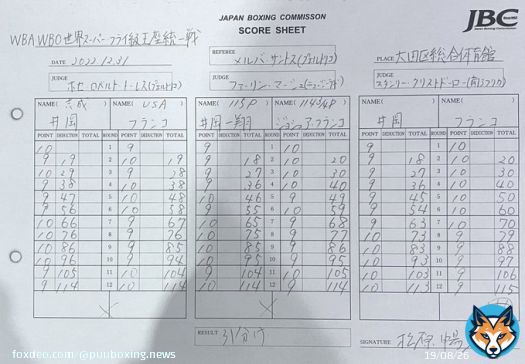 JAPAN BOXING COMMISSON
SCORE SHEET
JBC
WBA WBO世界スーパーフライ級王座統一戦
DATE 2022.12.31
REFEREE メルバ・サントス(プエルトリコ)
PLACE 大田区総合体育館
JUDGE ホセ・ロベルト・トーレス(プエルトリコ)
JUDGE
JUDGE
NAME( 志成 ) NAME( USA ) NAME( 115P ) NAME( ) NAME( ) NAME( )
井岡 フランコ 井岡一翔 ジョシュア・フランコ 井岡 フランコ
POINT DEDUCTION TOTAL ROUND POINT DEDUCTION TOTAL POINT DEDUCTION TOTAL ROUND POINT DEDUCTION TOTAL POINT DEDUCTION TOTAL ROUND POINT DEDUCTION TOTAL
10 1 9 9 1 10 9 1 10
9 19 2 10 19 9 18 2 10 20 9 18 2 10 20
10 29 3 9 28 9 27 3 10 30 9 27 3 10 30
9 38 4 10 38 9 36 4 10 40 9 36 4 10 40
9 47 5 10 48 10 46 5 9 49 9 45 5 10 50
9 56 6 10 58 9 6 10 59 9 54 6 10 60
10 66 7 9 67 10 65 7 9 68 9 63 7 10 70
10 76 8 9 76 10 75 8 9 77 10 73 8 9 79
10 86 9 9 85 10 85 9 9 86 10 83 9 9 88
10 96 10 9 94 10 95 10 9 95 10 93 10 9 97
9 105 11 10 104 9 104 11 10 105 10 103 11 9 106
9 114 12 10 114 10 114 12 9 114 10 113 12 9 115
RESULT 引分け
SIGNATURE
foxdeo.com/@puuboxing.news
19/08/26